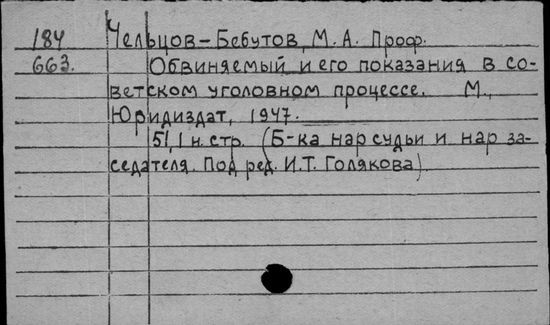 184 Чельцов-Бебутов, М. А. Проф.
663. Обвиняемый и его показания в со-
ветском уголовном процессе. М.,
Юридиздат, 1947.
51, 1 н. стр. (Б-ка нар судьи и нар за-
седателя. Под ред. И. Т. Голякова)